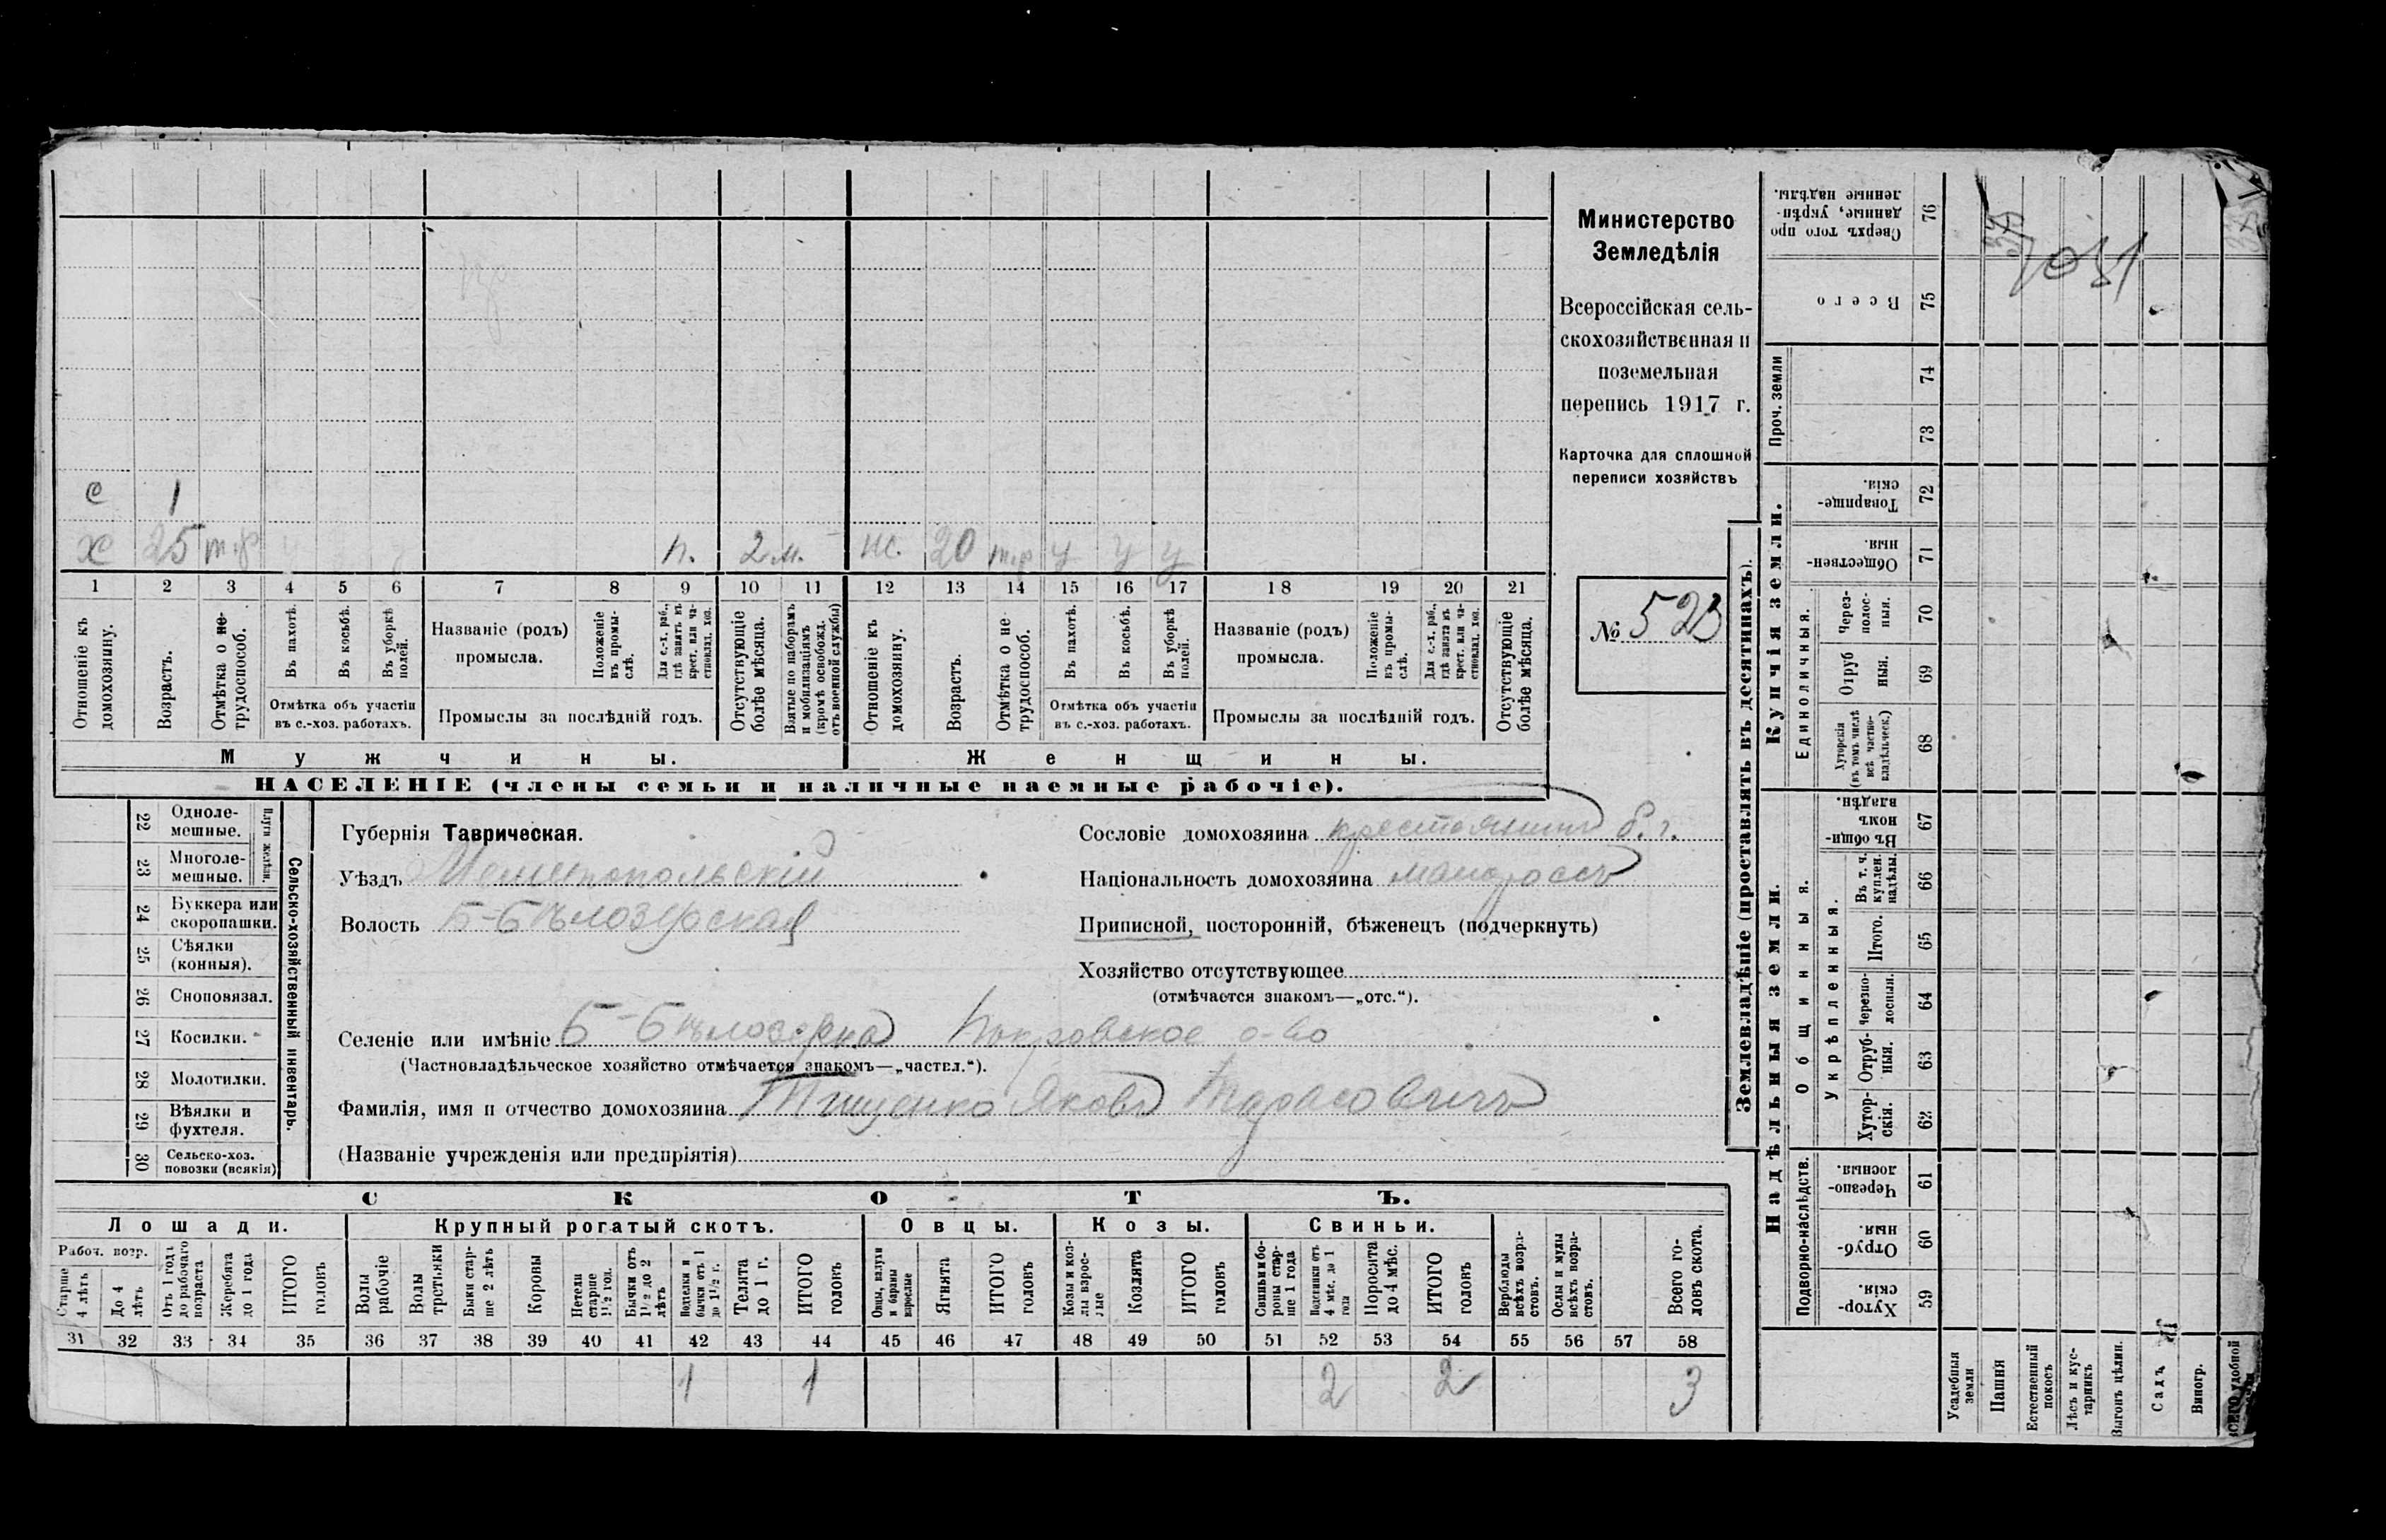 Министерство
Земледѣлія
Всероссійская сель-
скохозяйственная и
поземельная
перепись 1917 г.
Карточка для сплошной
переписи хозяйствъ
№ 523
с 1
х 25 т.р п. 2 м. ж. 20 т.р у у у
1 2 3 4 5 6 7 8 9 10 11 12 13 14 15 16 17 18 19 20 21
Отношеніе къ домохозяину.
Возрастъ.
Отмѣтка о не-трудоспособ.
Въ пахотѣ.
Въ косьбѣ.
Въ уборкѣ полей.
Отмѣтка объ участіи
въ с.-хоз. работахъ.
Названіе (родъ)
промысла.
Положеніе въ промы-слѣ.
Для с.-х. раб., гдѣ занятъ въ крест. или ча-стновлад. хоз.
Промыслы за послѣдній годъ.
Отсутствующіе болѣе мѣсяца.
Взятые по наборамъ и мобилизаціямъ (кромѣ освобожд. отъ военной службы)
Отношеніе къ домохозяину.
Возрастъ.
Отмѣтка о не-трудоспособ.
Въ пахотѣ.
Въ косьбѣ.
Въ уборкѣ полей.
Отмѣтка объ участіи
въ с.-хоз. работахъ.
Названіе (родъ)
промысла.
Положеніе въ промы-слѣ.
Для с.-х. раб., гдѣ занята въ крест. или ча-стновлад. хоз.
Промыслы за послѣдній годъ.
Отсутствующіе болѣе мѣсяца.
Мужчины. Женщины.
НАСЕЛЕНІЕ (члены семьи и наличные наемные рабочіе).
Сельско-хозяйственный инвентарь.
Плуги желѣзн.
22 Одноле-мешные.
23 Многоле-мешные.
24 Буккера или скоропашки.
25 Сѣялки (конныя).
26 Сноповязал.
27 Косилки.
28 Молотилки.
29 Вѣялки и фухтеля.
30 Сельско-хоз. повозки (всякія)
Губернія Таврическая.
Уѣздъ Мелитопольскій
Волость Б-Бѣлозерская
Сословіе домохозяина крестьянинъ б. г.
Національность домохозяина малоросъ
Приписной, посторонній, бѣженецъ (подчеркнуть)
Хозяйство отсутствующее
(отмѣчается знакомъ—„отс.“).
Селеніе или имѣніе Б-Бѣлозерка Покровское о-во
(Частновладѣльческое хозяйство отмѣчается знакомъ—„частвл.“).
Фамилія, имя и отчество домохозяина Тищенко Яковъ Тарасовичъ
(Названіе учрежденія или предпріятія)
СКОТЪ.
Лошади. Крупный рогатый скотъ. Овцы. Козы. Свиньи.
Рабоч. возр.
Старше 4 лѣтъ
До 4 лѣтъ
Отъ 1 года до рабочаго возраста
Жеребята до 1 года
ИТОГО головъ
Волы рабочіе
Волы третьяки
Быки стар-ше 2 лѣтъ
Коровы
Нетели старше 1½ год.
Бычки отъ 1½ до 2 лѣтъ
Телки и бычки отъ 1 до 1½ г.
Телята до 1 г.
ИТОГО головъ
Овцы, валухи и бараны взрослые
Ягнята
ИТОГО головъ
Козы и коз-лы взрос-лые
Козлята
ИТОГО головъ
Свиньи и бо-ровы стар-ше 1 года
Подсвинки отъ 4 мѣс. до 1 года
Поросята до 4 мѣс.
ИТОГО головъ
Верблюды всѣхъ возра-стовъ.
Ослы и мулы всѣхъ возра-стовъ.
Всего го-ловъ скота.
31 32 33 34 35 36 37 38 39 40 41 42 43 44 45 46 47 48 49 50 51 52 53 54 55 56 57 58
1 1 2 2 3
Землевладѣніе (проставлять въ десятинахъ).
Купчія земли.
Надѣльныя земли.
Сверхъ того про-данные, укрѣп-ленные надѣлы. 76
Всего 75
Проч. земли 74
73
Товарище-скія. 72
Обществен-ныя. 71
Единоличныя.
Через-полос-ныя. 70
Отруб-ныя. 69
Хуторскія (въ томъ числѣ всѣ частно-владѣльческ.) 68
Общинныя.
Въ общин-номъ владѣн. 67
Укрѣпленныя.
Въ т. ч. куплен. надѣлы. 66
Итого. 65
Черезпо-лосныя. 64
Отруб-ныя. 63
Хутор-скія. 62
Подворно-наслѣдств.
Черезпо-лосныя. 61
Отруб-ныя. 60
Хутор-скія. 59
Усадебныя земли
Пашня
Естественный покосъ
Лѣсъ и кус-тарникъ
Выгонъ цѣлин.
Садъ
Виногр.